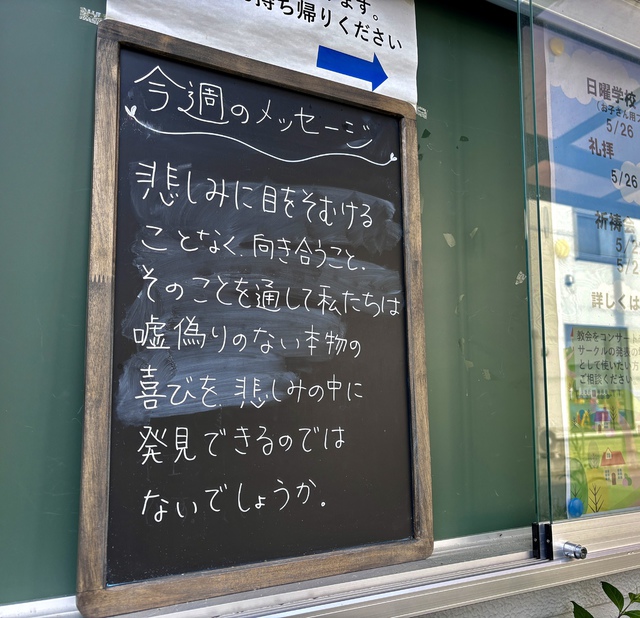 ます。
持ち帰りください
今週のメッセージ
悲しみに目をそむける
ことなく、向き合うこと、
そのことを通して私たちは
嘘偽りのない本物の
喜びを悲しみの中に
発見できるのでは
ないでしょうか。
日曜学校
5/26
礼拝
5/26
祈祷
詳しくは
教会をコンサート
サークルの発表の
として使いたい方
ご相談ください